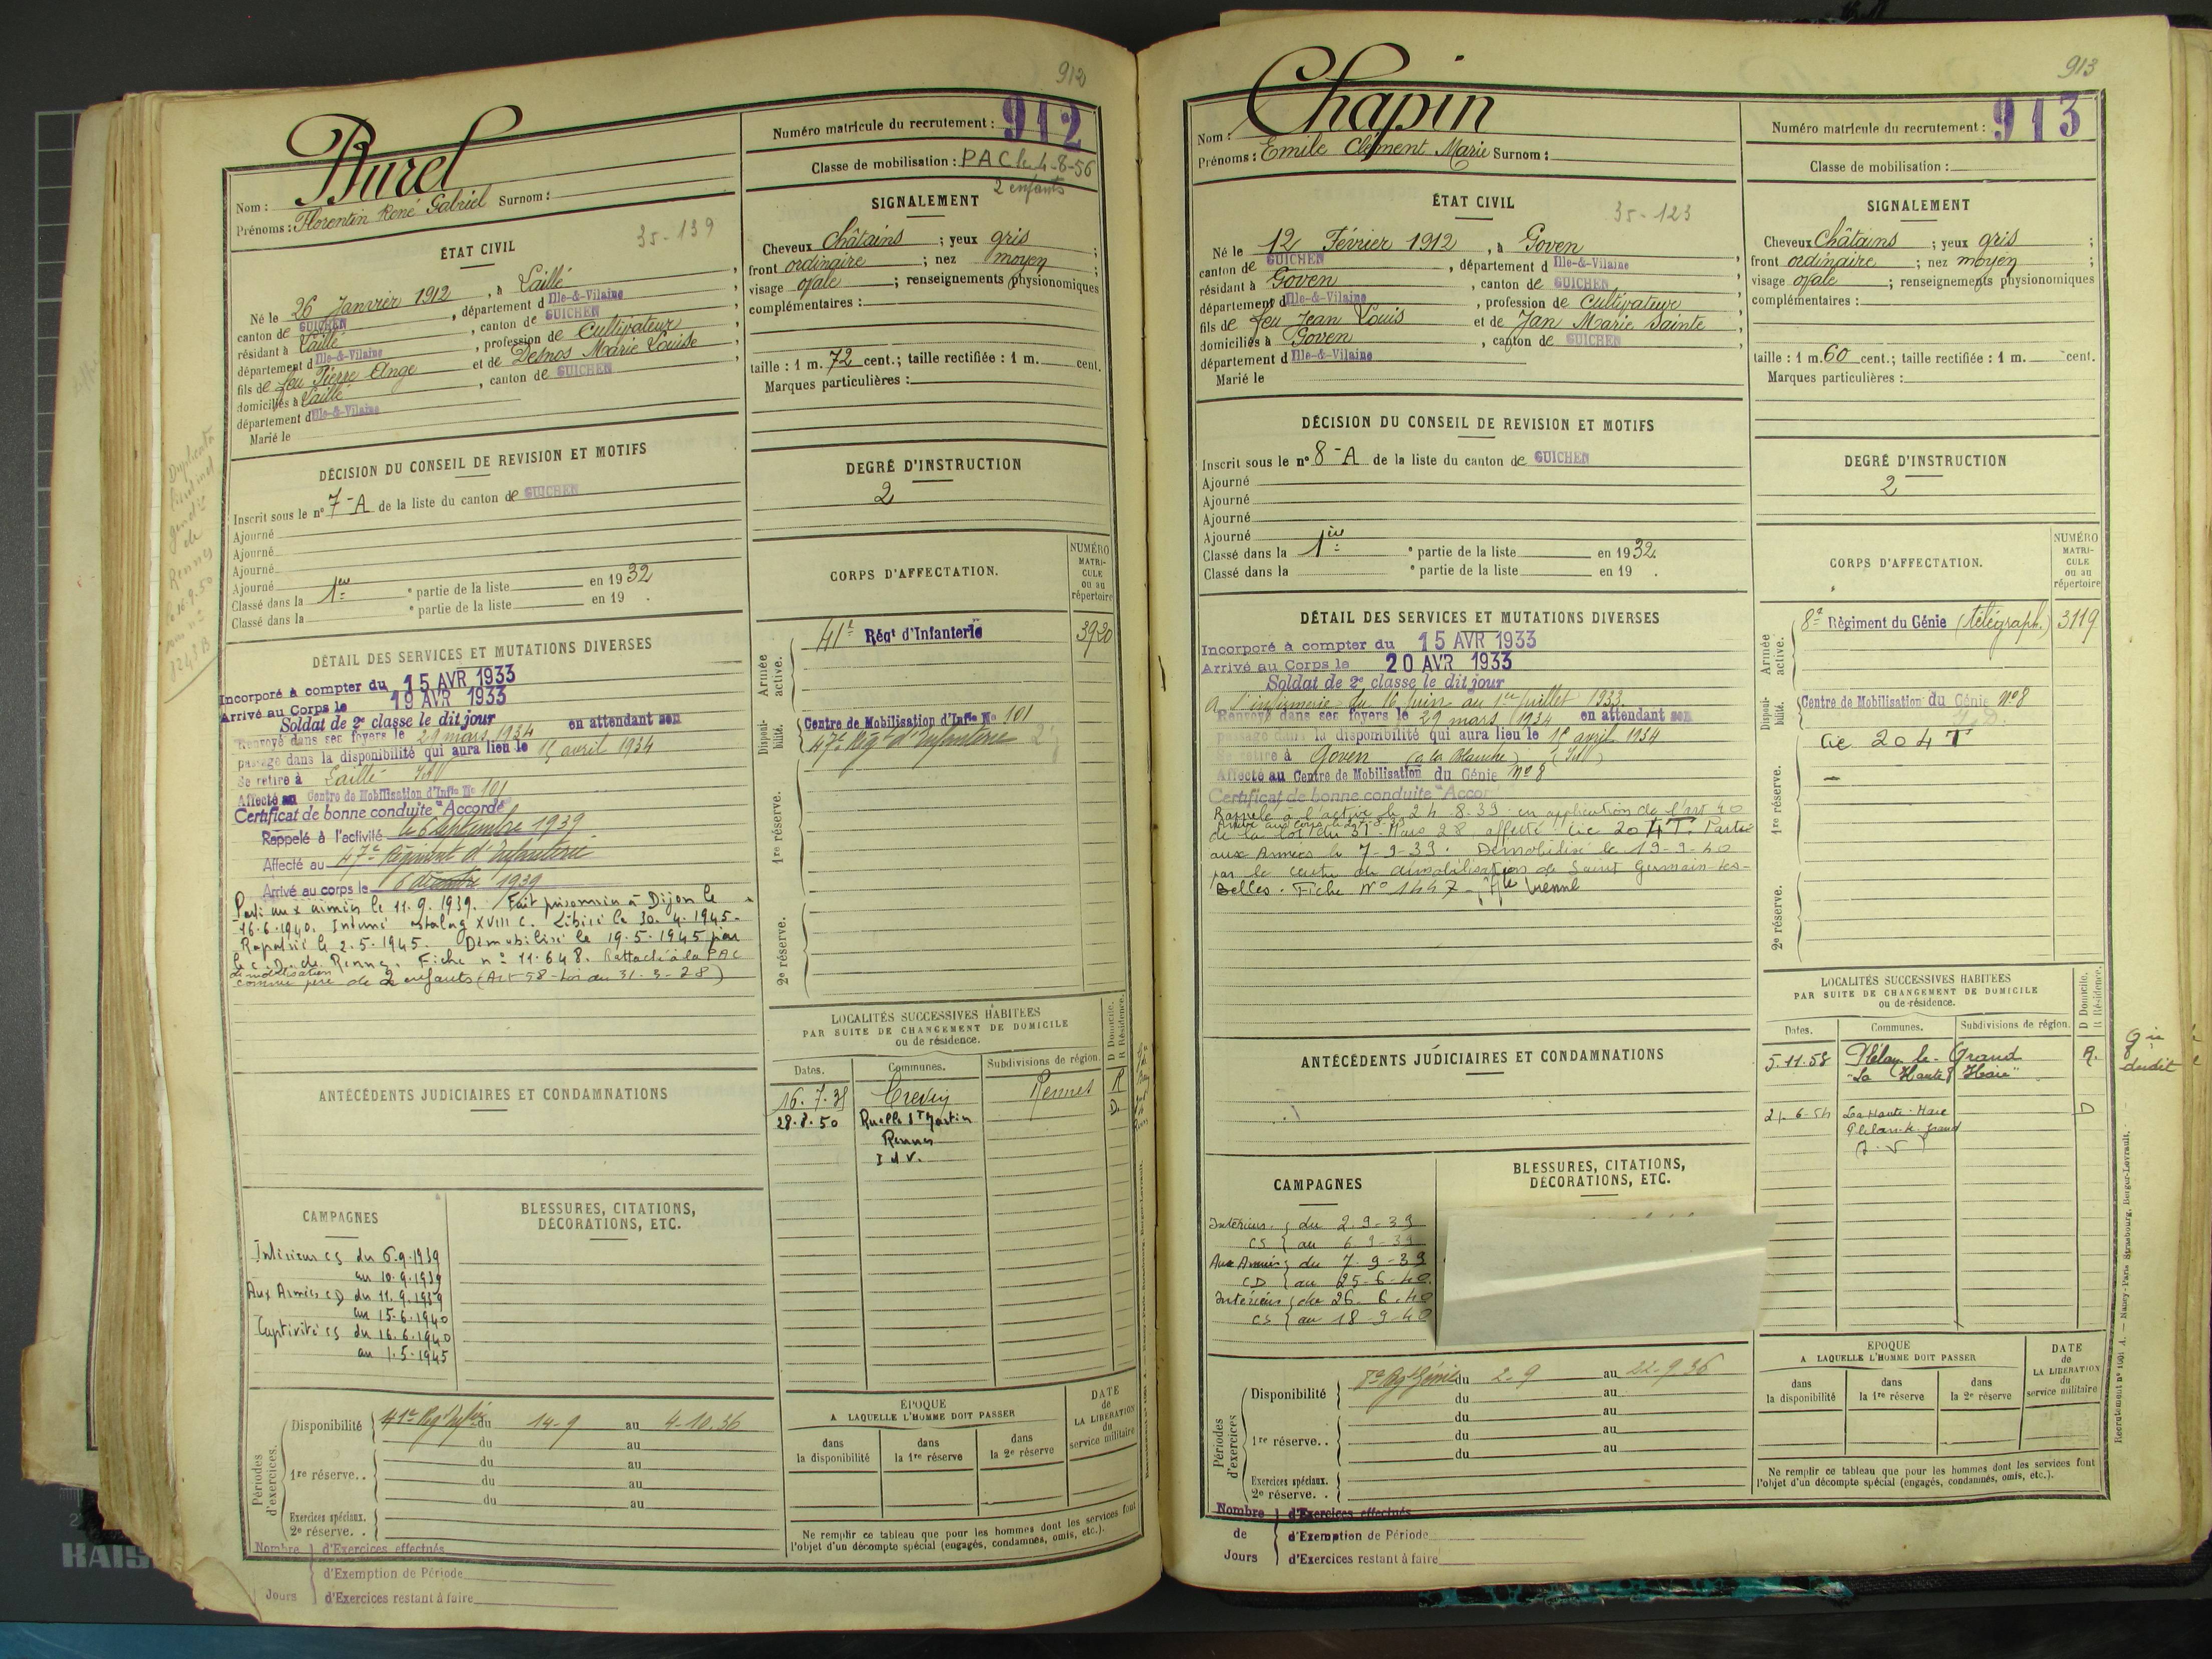 912
Burel
Nom :
Prénoms : Florentin René Gabriel Surnom :
Numéro matricule du recrutement : 912
Classe de mobilisation : PAC le 4-8-56
2 enfants
ÉTAT CIVIL
35-139
Né le 26 Janvier 1912, à Laillé,
canton de GUICHEN, département d Ille-&-Vilaine,
résidant à Laillé, canton de GUICHEN,
département d Ille-&-Vilaine, profession de Cultivateur,
fils de feu Pierre Ange et de Desnos Marie Louise,
domiciliés à Laillé, canton de GUICHEN,
département d Ille-&-Vilaine
Marié le
SIGNALEMENT
Cheveux châtains ; yeux gris ;
front ordinaire ; nez moyen ;
visage ovale ; renseignements physionomiques
complémentaires :
taille : 1 m. 72 cent.; taille rectifiée : 1 m. cent.
Marques particulières :
DÉCISION DU CONSEIL DE REVISION ET MOTIFS
Inscrit sous le n° 7-A de la liste du canton de GUICHEN
Ajourné
Ajourné
Ajourné
Ajourné
Classé dans la 1ère partie de la liste en 1932
Classé dans la e partie de la liste en 19 .
DEGRÉ D'INSTRUCTION
2
CORPS D'AFFECTATION.
NUMÉRO
MATRI-
CULE
ou au
répertoire
Armée active.
41e Régt d'Infanterie 3920
Disponibilité.
Centre de Mobilisation d'Infie No 101
47e Régt d'Infanterie
1re réserve.
2e réserve.
DÉTAIL DES SERVICES ET MUTATIONS DIVERSES
Incorporé à compter du 15 AVR 1933
Arrivé au Corps le 19 AVR 1933
Soldat de 2e classe le dit jour
Renvoyé dans ses foyers le 29 mars 1934 en attendant son
passage dans la disponibilité qui aura lieu le 15 avril 1934
Se retire à Laillé I&V
Affecté au Centre de Mobilisation d'Infie No 101
Certificat de bonne conduite "Accordé"
Rappelé à l'activité le 6 septembre 1939
Affecté au 47e Régiment d'Infanterie
Arrivé au corps le 6 1939
Parti aux armées le 11.9.1939. Fait prisonnier à Dijon le
16.6.1940. Interné stalag XVIII C. Libéré le 30.4.1945.
Rapatrié le 2.5.1945. Démobilisé le 19.5.1945 par
le C.D. de Rennes. Fiche n° 11.648. Rattaché à la PAC
de mobilisation
comme père de 2 enfants (Art 58 - Loi du 31-3-28)
LOCALITÉS SUCCESSIVES HABITÉES
PAR SUITE DE CHANGEMENT DE DOMICILE
ou de résidence.
Dates. Communes. Subdivisions de région. D Domicile. R Résidence.
16.7.35 Crevin Rennes R
28.8.50 Ruelle St Martin D
Rennes
I&V.
ANTÉCÉDENTS JUDICIAIRES ET CONDAMNATIONS
CAMPAGNES
Intérieur CS du 6.9.1939
au 10.9.1939
Aux Armées CD du 11.9.1939
au 15.6.1940
Captivité CS du 16.6.1940
au 1.5.1945
BLESSURES, CITATIONS,
DÉCORATIONS, ETC.
Périodes d'exercices.
Disponibilité 41e Régt d'Infie du 14-9 au 4-10.36
du au
1re réserve.. du au
du au
du au
Exercices spéciaux.
2e réserve..
ÉPOQUE
A LAQUELLE L'HOMME DOIT PASSER
dans la disponibilité
dans la 1re réserve
dans la 2e réserve
DATE
de
LA LIBÉRATION
du
service militaire
Ne remplir ce tableau que pour les hommes dont les services font
l'objet d'un décompte spécial (engagés, condamnés, omis, etc.).
Nombre d'Exercices effectués
d'Exemption de Période
Jours d'Exercices restant à faire
Duplicata
livret ind
gendie
de
Rennes
le 16.9.50
913
Chapin
Nom :
Prénoms : Emile Clément Marie Surnom :
Numéro matricule du recrutement : 913
Classe de mobilisation :
ÉTAT CIVIL
35-123
Né le 12 Février 1912, à Goven,
canton de GUICHEN, département d Ille-&-Vilaine
résidant à Goven, canton de GUICHEN,
département d Ille-&-Vilaine, profession de Cultivateur,
fils de feu Jean Louis et de Jan Marie Sainte,
domiciliés à Goven, canton de GUICHEN,
département d Ille-&-Vilaine
Marié le
SIGNALEMENT
Cheveux châtains ; yeux gris ;
front ordinaire ; nez moyen ;
visage ovale ; renseignements physionomiques
complémentaires :
taille : 1 m. 60 cent.; taille rectifiée : 1 m. cent.
Marques particulières :
DÉCISION DU CONSEIL DE REVISION ET MOTIFS
Inscrit sous le n° 8-A de la liste du canton de GUICHEN
Ajourné
Ajourné
Ajourné
Ajourné
Classé dans la 1ère partie de la liste en 1932.
Classé dans la e partie de la liste en 19 .
DEGRÉ D'INSTRUCTION
2
CORPS D'AFFECTATION.
NUMÉRO
MATRI-
CULE
ou au
répertoire
Armée active.
8e Régiment du Génie (télégraph.) 3119
Disponibilité.
Centre de Mobilisation du Génie No 8
Cie 204 T
1re réserve.
2e réserve.
DÉTAIL DES SERVICES ET MUTATIONS DIVERSES
Incorporé à compter du 15 AVR 1933
Arrivé au Corps le 20 AVR 1933
Soldat de 2e classe le dit jour
A l'infirmerie du 16 Juin au 1er Juillet 1933.
Renvoyé dans ses foyers le 29 mars 1934 en attendant son
passage dans la disponibilité qui aura lieu le 15 avril 1934
Se retire à Goven (à la Planche) (I&V)
Affecté au Centre de Mobilisation du Génie No 8
Certificat de bonne conduite "Accordé"
Rappelé à l'active le 24-8-39 en application de l'art 40
Arrivé au corps le 27-8-39
de la loi du 31-Mars 28, affecté Cie 204T. Parti
aux Armées le 7-9-39. Démobilisé le 19-9-40
par le centre de démobilisation de Saint Germain-les-
Belles. Fiche No 1447 - Hte Vienne
LOCALITÉS SUCCESSIVES HABITÉES
PAR SUITE DE CHANGEMENT DE DOMICILE
ou de résidence.
Dates. Communes. Subdivisions de région. D Domicile. R Résidence.
5.11.58 Plélan-le-Grand R.
"La Haute Haie"
21-6-54 La Haute-Haie D
Plélan-le-Grand
I.V
Gie
dudit
ANTÉCÉDENTS JUDICIAIRES ET CONDAMNATIONS
CAMPAGNES
Intérieur du 2-9-39
CS au 6-9-39
Aux Armées du 7-9-39
CD au 25-6-40
Intérieur du 26-6-40
CS au 18-9-40
BLESSURES, CITATIONS,
DÉCORATIONS, ETC.
Périodes d'exercices
Disponibilité 8e Régt Génie du 2-9 au 22-9.36
du au
du au
1re réserve.. du au
du au
Exercices spéciaux.
2e réserve..
ÉPOQUE
A LAQUELLE L'HOMME DOIT PASSER
dans la disponibilité
dans la 1re réserve
dans la 2e réserve
DATE
de
LA LIBÉRATION
du
service militaire
Ne remplir ce tableau que pour les hommes dont les services font
l'objet d'un décompte spécial (engagés, condamnés, omis, etc.).
Nombre d'Exercices effectués
de d'Exemption de Période
Jours d'Exercices restant à faire
Recrutement n° 1001 A. — Nancy-Paris-Strasbourg, Berger-Levrault.